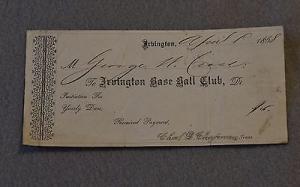 Irvington, April 8 1868
M George W. Case
To Irvington Base Ball Club, Dr
Initiation Fee
Yearly Dues,
Received Payment,
Treas